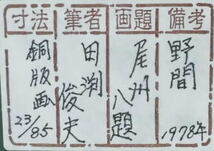 備考
野間
1978年
画題
尾州八題
筆者
田渕俊夫
寸法
銅版画
23/85